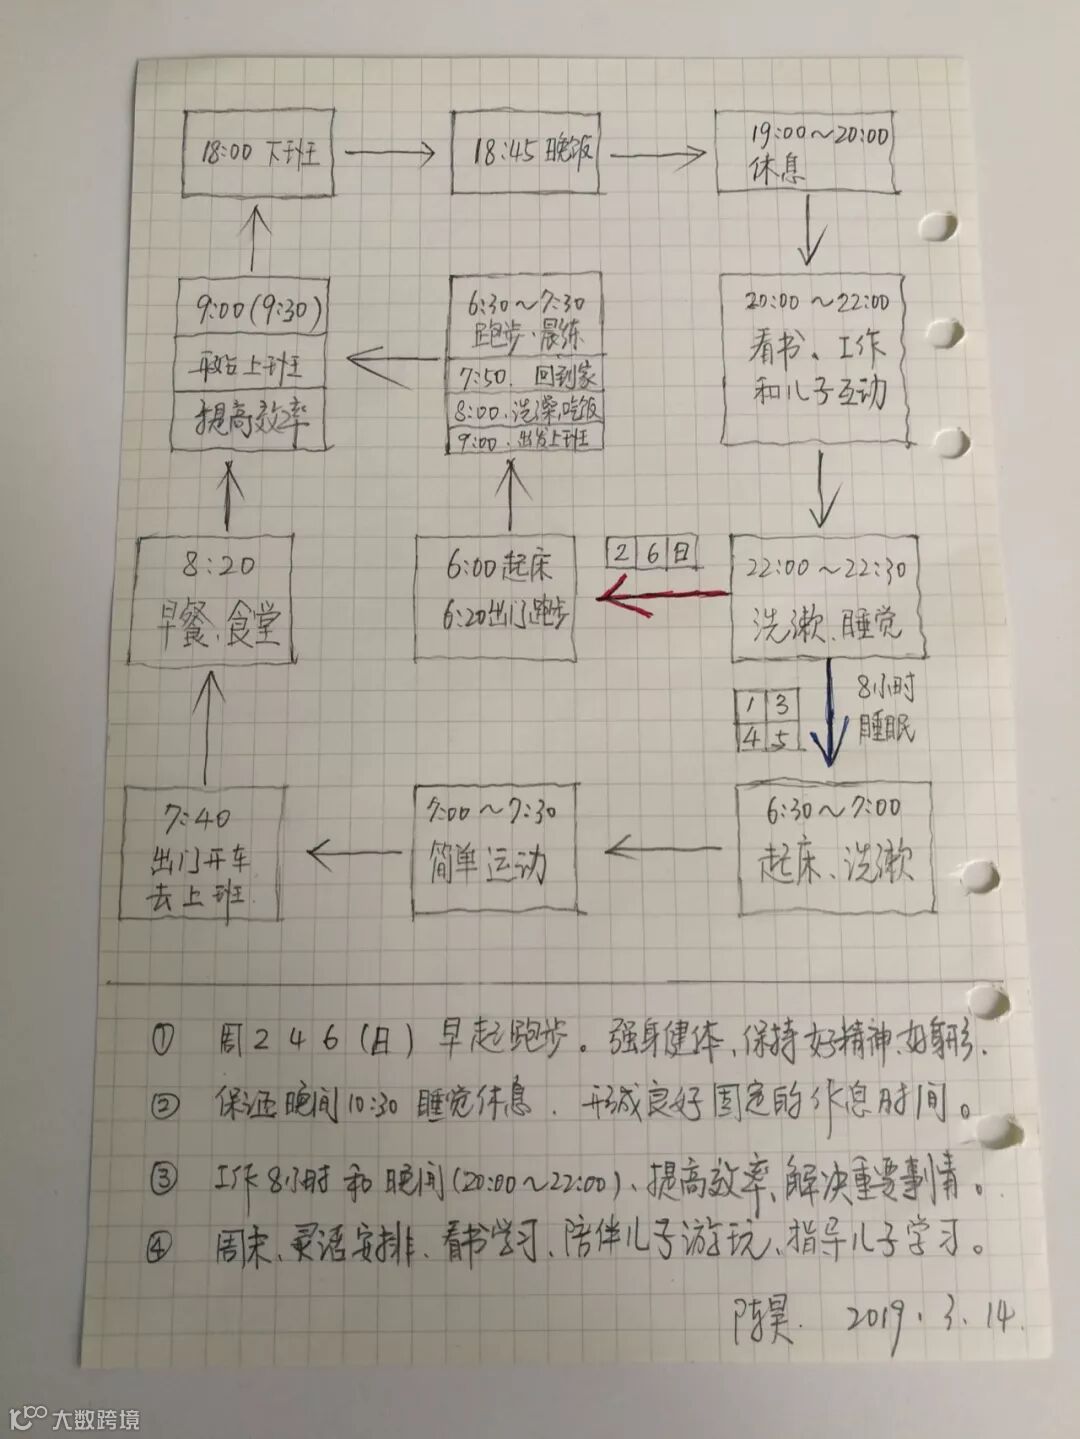 18:00 下班
18:45 晚饭
19:00～20:00
休息
9:00(9:30)
上班
提高效率
6:30～7:30
跑步·晨练
7:50. 回到家
8:00. 洗澡,吃饭
9:00. 出发上班
20:00～22:00
看书、工作
和儿子互动
8:20
早餐、食堂
6:00起床
6:20出门跑步
2 6 日
22:00～22:30
洗漱、睡觉
1 3
4 5
8小时
睡眠
7:40
出门开车
去上班.
7:00～7:30
简单运动
6:30～7:00
起床、洗漱
① 周 2 4 6 (日) 早起跑步。强身健体、保持好精神、好身形.
② 保证晚间10:30 睡觉休息. 形成良好固定的作息时间。
③ 工作8小时 和 晚间(20:00～22:00)、提高效率、解决重要事情。
④ 周末、灵活安排、看书学习、陪伴儿子游玩、指导儿子学习。
陈昊. 2019.3.14.
大数跨境